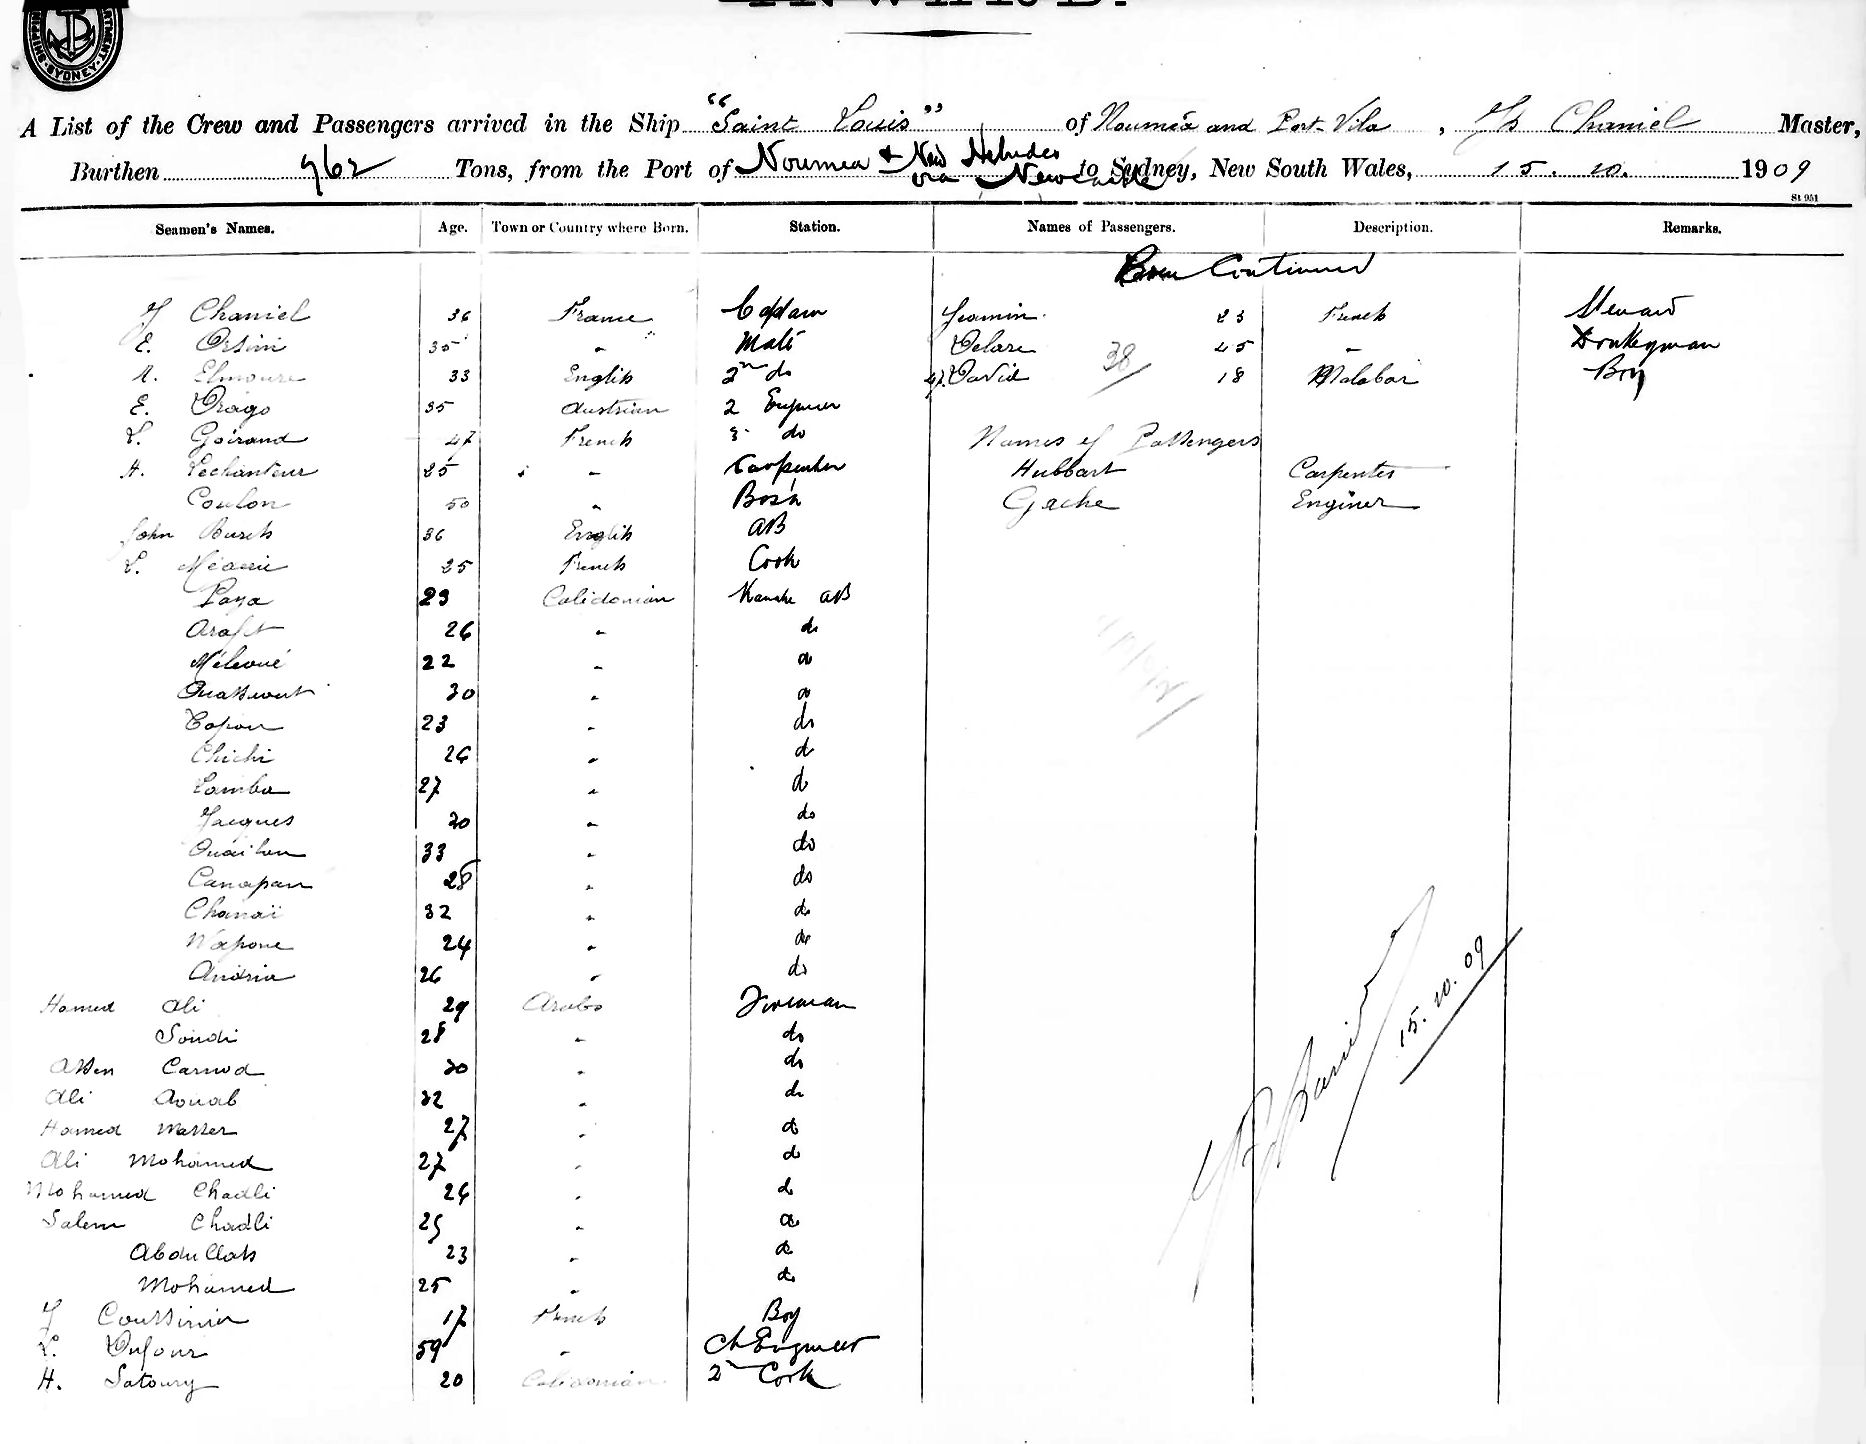 INWARD.
SYDNEY
A List of the Crew and Passengers arrived in the Ship "Saint Louis" of Nouméa and Port-Vila, Chaniel Master,
Burthen 962 Tons, from the Port of Noumea & New Hebrides via Newcastle to Sydney, New South Wales, 15.10. 1909
St 951
Seamen's Names. Age. Town or Country where Born. Station. Names of Passengers. Description. Remarks.
Crew Continued
J Chaniel 36 France Captain 23 French Steward
E. Orsini 35 " Mate Delare 45 " Donkeyman
A. Elmoure 33 English 2nd do 47. David 18 Malabar Boy
38/
E. Drago 35 Austrian 2 Engineer
L. Goirand 47 French 3 do Names of Passengers
H. Lechanteur 25 " Carpenter Hubbart Carpenter
Coulon 50 " Bos'n Gache Enginer
John Burch 36 English AB
L. 25 French Cook
Paya 23 Calédonian Kanake AB
26 " do
22 " do
30 " do
23 " do
Chichi 26 " do
Samba 27 " do
Jacques 30 " do
33 " do
Canapan 28 " do
Chanaï 32 " do
Wapone 24 " do
Andria 26 " do
Hamed Ali 29 Arabs Fireman
Soudi 28 " do
Assen Carmod 30 " do
Ali Aouab 32 " do
Hamed Masser 27 " do
Ali Mohamed 27 " do
Mohamed Chadli 26 " do
Salem Chadli 25 " do
Abdullah 23 " do
Mohamed 25 " do
J Coussinier 17 French Boy
L. Dufour 59 " Ch Engineer
H. Satoury 20 Calédonian 2nd Cook
15.10.09